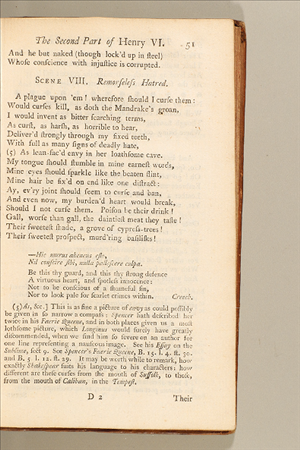 The Second Part of Henry VI. 51
And he but naked (though lock'd up in steel)
Whose conscience with injustice is corrupted.
SCENE VIII. Remorseless Hatred.
A plague upon 'em! wherefore should I curse them:
Would curses kill, as doth the Mandrake's groan,
I would invent as bitter searching terms,
As curst, as harsh, as horrible to hear,
Deliver'd strongly through my fixed teeth,
With full as many signs of deadly hate,
(5) As lean-fac'd envy in her loathsome cave.
My tongue should stumble in mine earnest words,
Mine eyes should sparkle like the beaten flint,
Mine hair be fix'd on end like one distract:
Ay, ev'ry joint should seem to curse and ban,
And even now, my burden'd heart would break,
Should I not curse them. Poison be their drink!
Gall, worse than gall, the daintiest meat they taste!
Their sweetest shade, a grove of cypress-trees!
Their sweetest prospect, murd'ring basilisks!
—Hic murus aheneus esto,
Nil conscire sibi, nulla pallescere culpa.
Be this thy guard, and this thy strong defence
A virtuous heart, and spotless innocence:
Not to be conscious of a shameful sin,
Nor to look pale for scarlet crimes within. Creech.
(5) As, &c.] This is as fine a picture of envy as could possibly
be given in so narrow a compass: Spencer hath described her
twice in his Faerie Queene, and in both places given us a most
lothsome picture, which Longinus would surely have greatly
discommended, when we find him so severe on an author for
one line representing a nauseous image. See his Essay on the
Sublime, sect 9. See Spencer's Faerie Queene, B. 15. l. 4. st. 30.
and B. 5. l. 12. st. 29. It may be worth while to remark, how
exactly Shakespear suits his language to his characters: how
different are these curses from the mouth of Suffolk, to those,
from the mouth of Caliban, in the Tempest.
D 2 Their